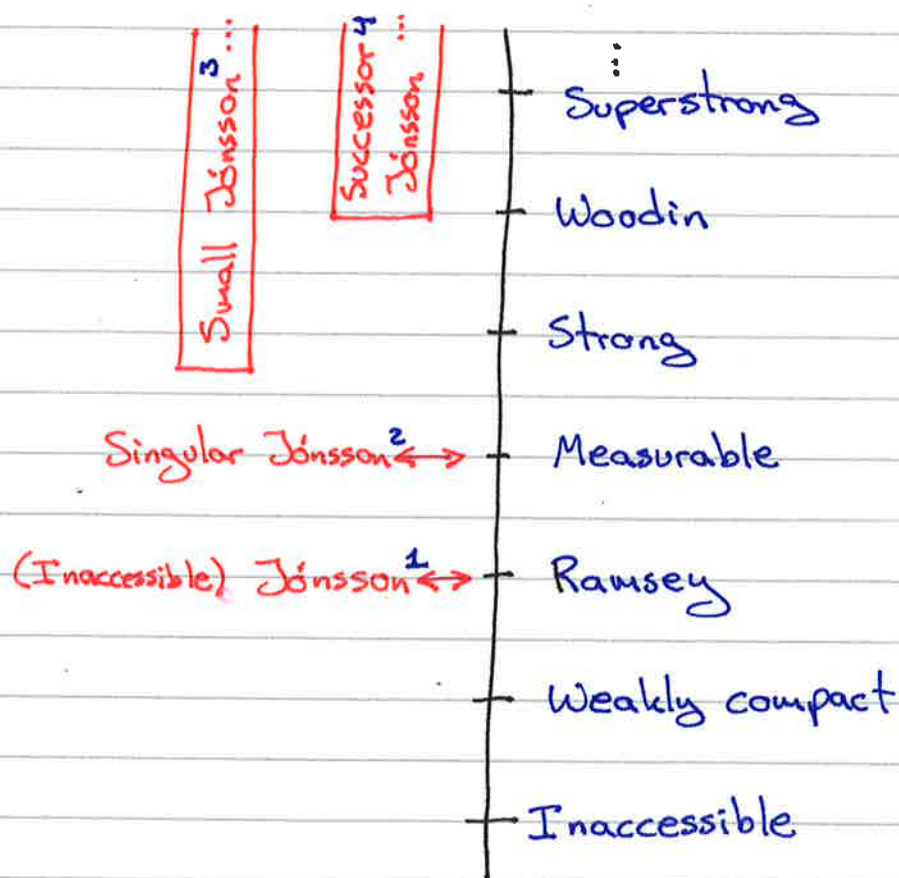 Small Jónsson³ ...
Successor⁴ ...
Jónsson
⋮
Superstrong
Woodin
Strong
Singular Jónsson² ↔ Measurable
(Inaccessible) Jónsson¹ ↔ Ramsey
Weakly compact
Inaccessible